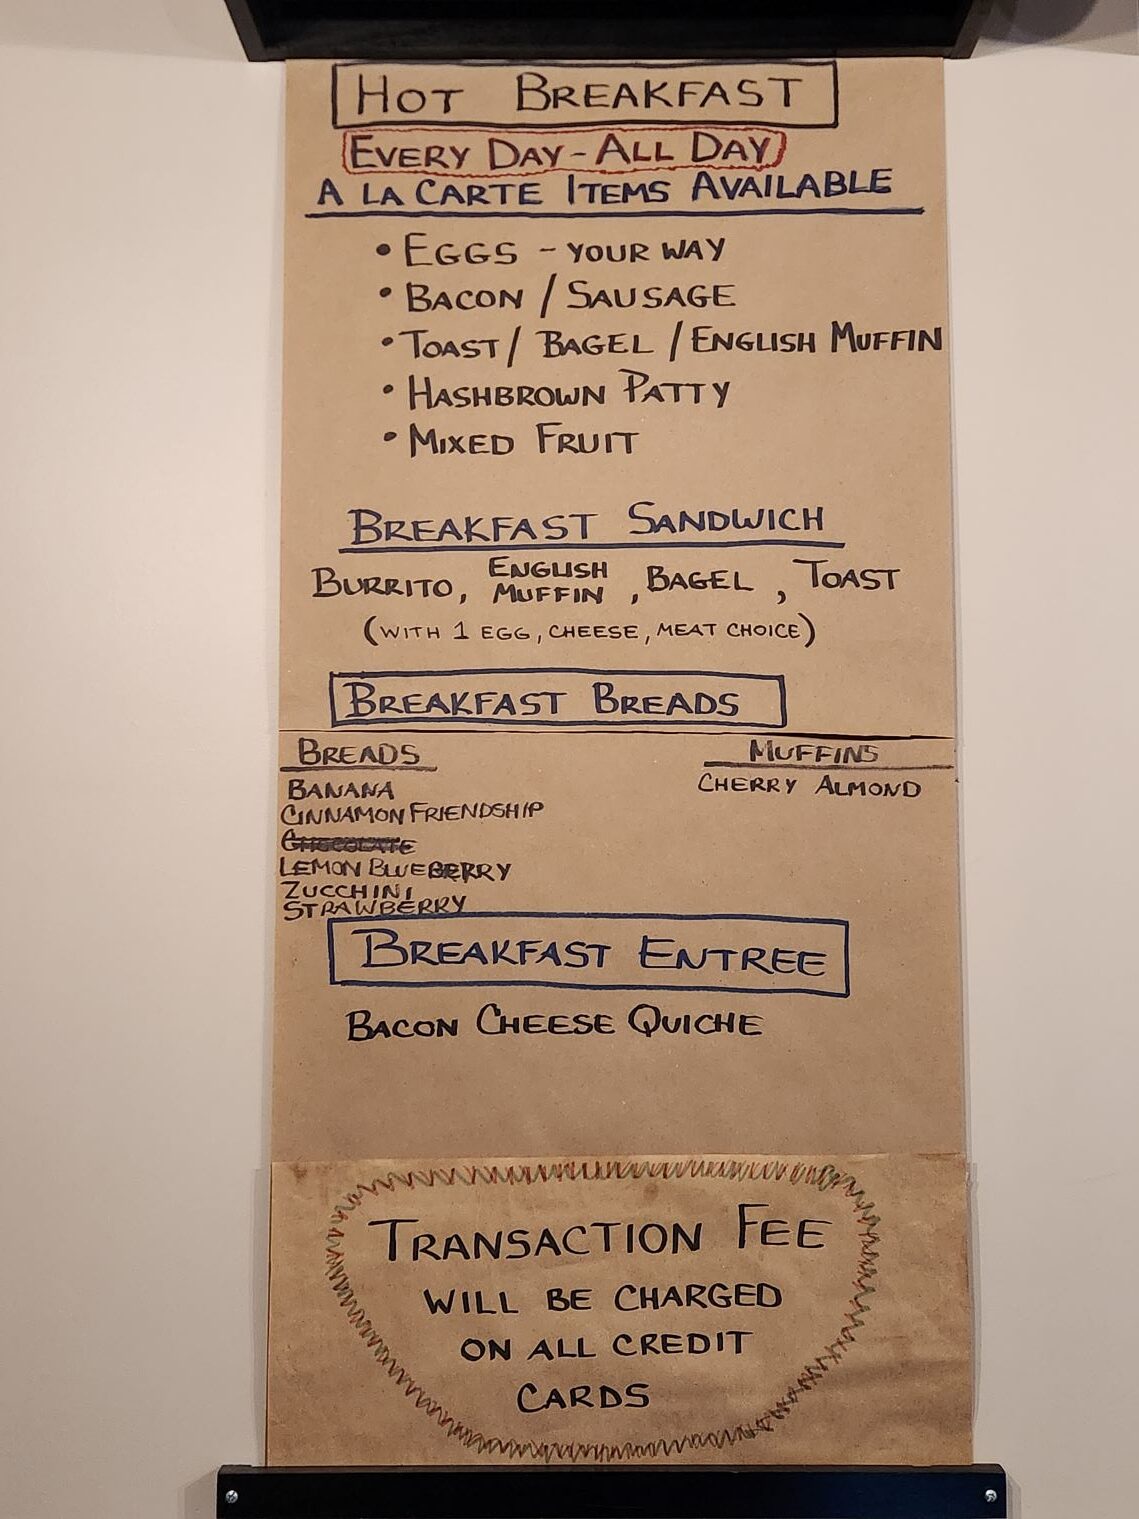 HOT BREAKFAST
EVERY DAY - ALL DAY
A LA CARTE ITEMS AVAILABLE
• EGGS - YOUR WAY
• BACON / SAUSAGE
• TOAST / BAGEL / ENGLISH MUFFIN
• HASHBROWN PATTY
• MIXED FRUIT
BREAKFAST SANDWICH
BURRITO, ENGLISH MUFFIN, BAGEL, TOAST
(WITH 1 EGG, CHEESE, MEAT CHOICE)
BREAKFAST BREADS
BREADS
BANANA
CINNAMON FRIENDSHIP
CHOCOLATE
LEMON BLUEBERRY
ZUCCHINI
STRAWBERRY
MUFFINS
CHERRY ALMOND
BREAKFAST ENTREE
BACON CHEESE QUICHE
TRANSACTION FEE
WILL BE CHARGED
ON ALL CREDIT
CARDS